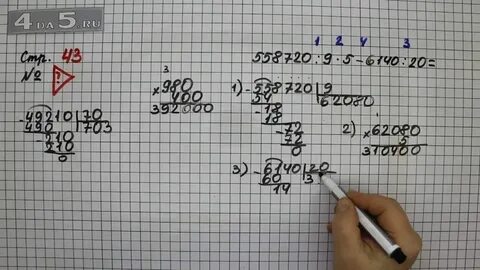 4DA5.RU
Стр. 43
№ ?
49210 | 70
490 | 703
210
210
0
3
× 980
400
392000
1 2 4 3
558720 : 9 · 5 - 6140 : 20 =
1) 558720 | 9
54 | 62080
18
18
72
72
0
2) × 62080
5
310400
3) 6140 | 20
60 | 3
14